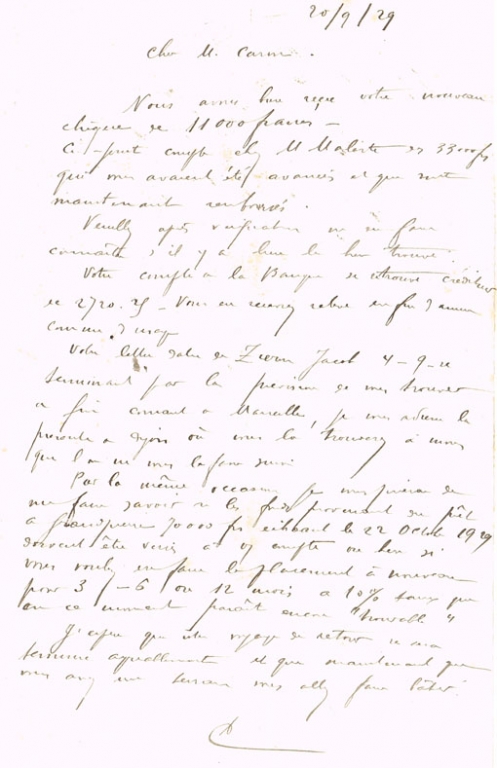 20/9/29
Cher M. Carm
Nous avons bien reçu votre nouveau
chèque de 11 000 francs -
Ci-joint compte chez M de 33000 frs
qui vous avaient été avancés et qui sont
maintenant remboursés.
Veuillez après vérification me faire
connaître s'il y a lieu le bien trouvé.
Votre compte à la Banque se retrouve créditeur
de 2720.25 - Vous en recevrez relevé en fin d'année
comme d'usage
Votre lettre datée de Jacob 4-9-
terminant par la de vous trouver
à fin courant à Marseille, je vous adresse la
présente à Dijon où vous la trouverez à moins
que l'on ne vous la fasse suivre
Par la même occasion je vous prierai de
me faire savoir si les fonds provenant du prêt
à 70000 frs échéant le 22 Octobre 1929
doivent être versés à v/ compte ou bien si
vous voulez en faire le placement à nouveau
pour 3 - 6 ou 12 mois à 10% taux que
en ce moment paraît encore "trouvable"
J'espère que votre voyage de retour se sera
terminé agréablement et que maintenant que
vous vous allez faire bâtir.